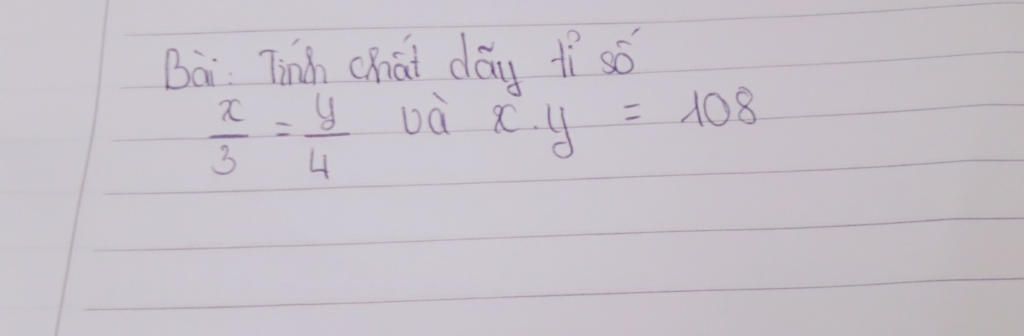 Bài: Tính chất dãy tỉ số
x/3 = y/4 và x.y = 108